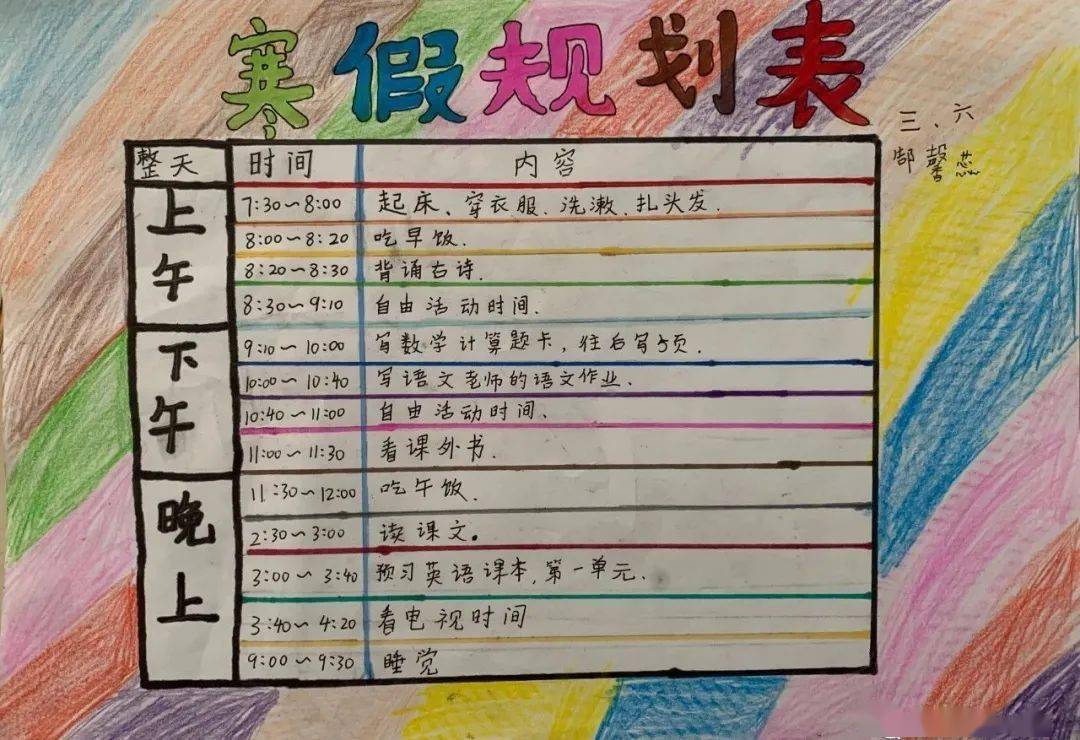 寒假规划表
三、六
郜馨蕊
整天 时间 内容
上午
7:30～8:00 起床、穿衣服、洗漱、扎头发.
8:00～8:20 吃早饭.
8:20～8:30 背诵古诗.
8:30～9:10 自由活动时间.
下午
9:10～10:00 写数学计算题卡,往后写5页.
10:00～10:40 写语文老师的语文作业.
10:40～11:00 自由活动时间.
11:00～11:30 看课外书.
晚上
11:30～12:00 吃午饭.
2:30～3:00 读课文。
3:00～3:40 预习英语课本,第一单元.
3:40～4:20 看电视时间
9:00～9:30 睡觉